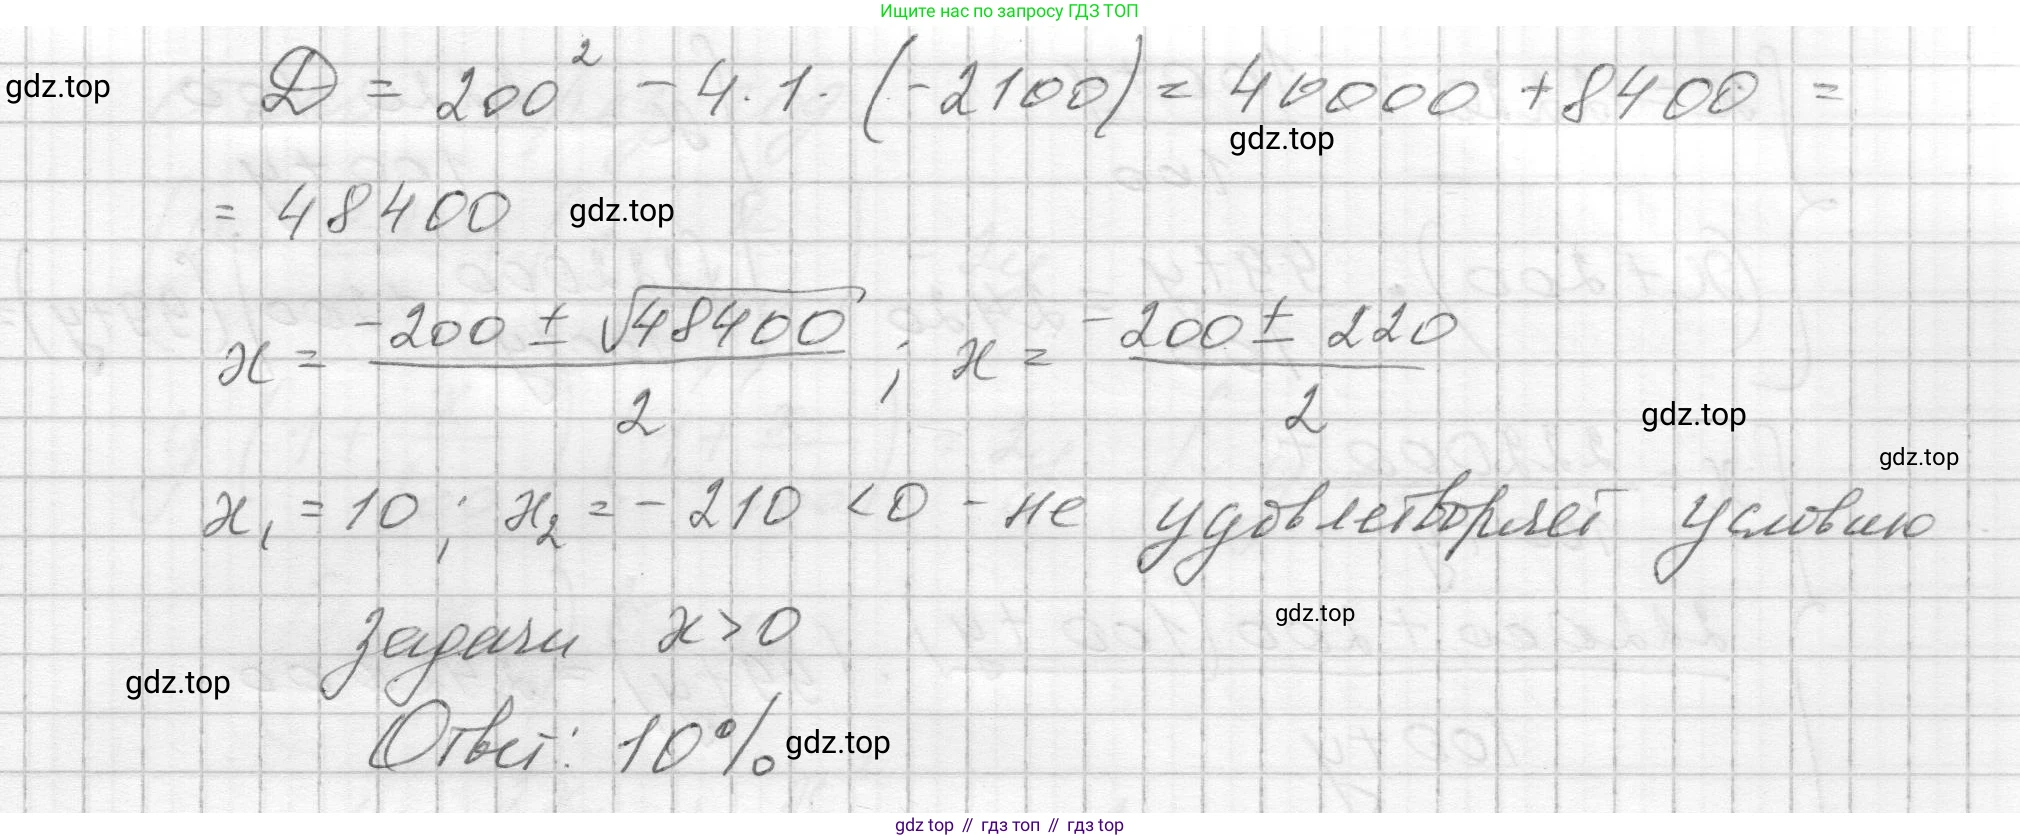 Ищите нас по запросу ГДЗ ТОП
gdz.top
D = 200² - 4 · 1 · (-2100) = 40000 + 8400 =
gdz.top
= 48400
gdz.top
x = (-200 ± √48400) / 2 ; x = (-200 ± 220) / 2
gdz.top
gdz.top
x₁ = 10 ; x₂ = -210 < 0 - не удовлетворяет условию
gdz.top
задачи x > 0
gdz.top
Ответ: 10%
gdz.top
gdz top // гдз топ // гдз top